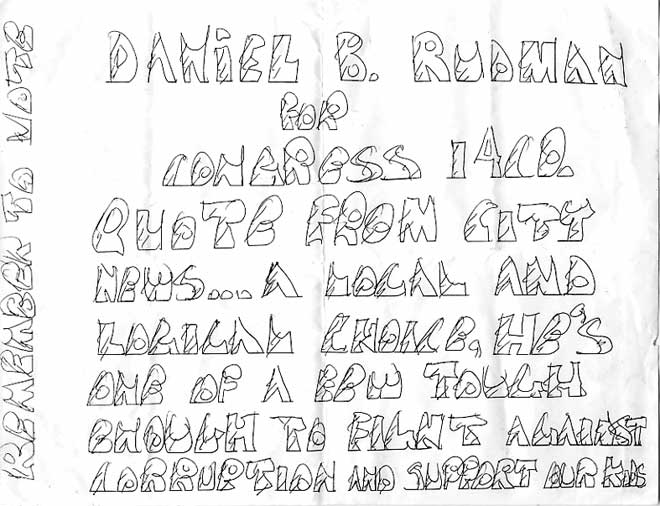 REMEMBER TO VOTE
DANIEL B. RUDMAN
FOR
CONGRESS 14CD.
QUOTE FROM CITY
NEWS... A LOCAL AND
LOGICAL CHOICE, HE'S
ONE OF A FEW TOUGH
ENOUGH TO FIGHT AGAINST
CORRUPTION AND SUPPORT OUR KIDS